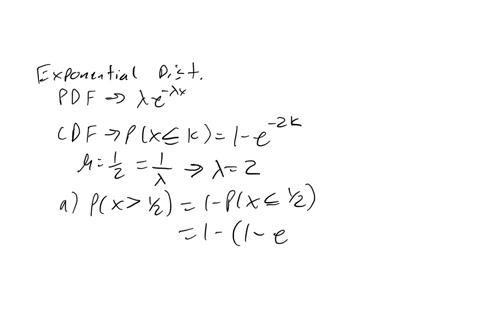 Exponential Dist.
PDF → λe^{-λx}
CDF → P(X ≤ k) = 1 - e^{-2k}
μ = 1/2 = 1/λ ⇒ λ = 2
a) P(X > 1/2) = 1 - P(X ≤ 1/2)
= 1 - (1 - e